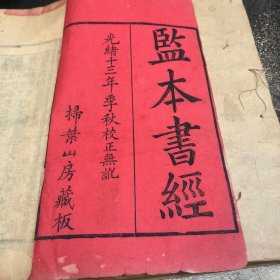 監本書經
光緒十三年季秋校正無訛
掃葉山房藏板